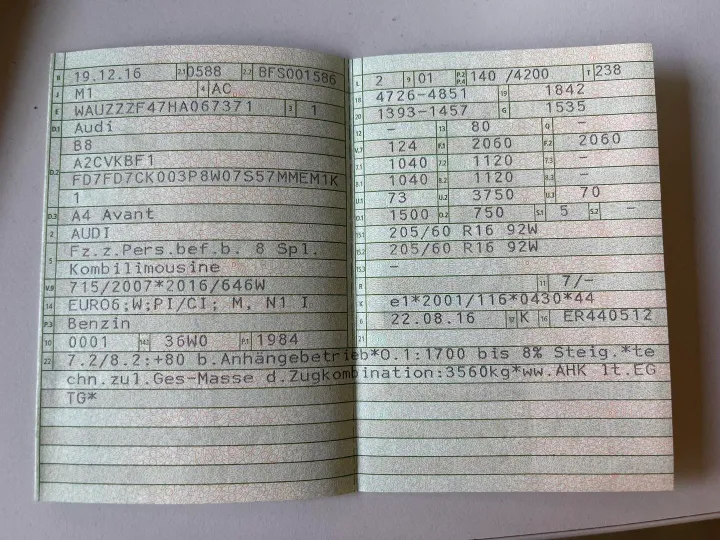 B 19.12.16 2.1 0588 2.2 BFS001586
J M1 4 AC
E WAUZZZF47HA067371 3 1
D.1 Audi
B8
D.2 A2CVKBF1
FD7FD7CK003P8W07S57MMEM1K
1
D.3 A4 Avant
2 AUDI
5 Fz.z.Pers.bef.b. 8 Spl.
Kombilimousine
V.9 715/2007*2016/646W
14 EURO6;W;PI/CI; M, N1 I
P.3 Benzin
10 0001 14.1 36W0 P.1 1984
L 2 9 01 P.2 P.4 140 /4200 T 238
18 4726-4851 19 1842
20 1393-1457 G 1535
12 – 13 80 Q –
V.7 124 F.1 2060 F.2 2060
7.1 1040 7.2 1120 7.3 –
8.1 1040 8.2 1120 8.3 –
U.1 73 U.2 3750 U.3 70
O.1 1500 O.2 750 S.1 5 S.2 –
15.1 205/60 R16 92W
15.2 205/60 R16 92W
15.3 –
R 11 7/–
K e1*2001/116*0430*44
6 22.08.16 17 K 16 ER440512
21
22 7.2/8.2:+80 b.Anhängebetrieb*O.1:1700 bis 8% Steig.*te
chn.zul.Ges-Masse d.Zugkombination:3560kg*ww.AHK lt.EG
TG*